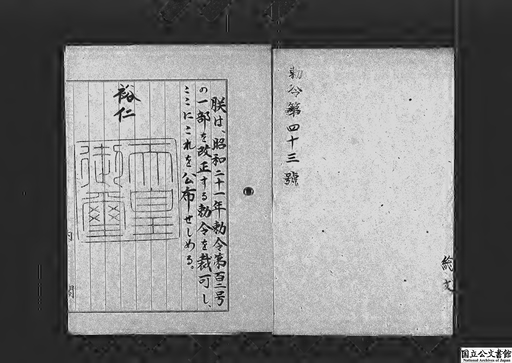 勅令第四十三號
総文
朕は、昭和二十一年勅令第百二号
の一部を改正する勅令を裁可し、
ここにこれを公布せしめる。
裕仁
天皇
御璽
内閣
国立公文書館
National Archives of Japan